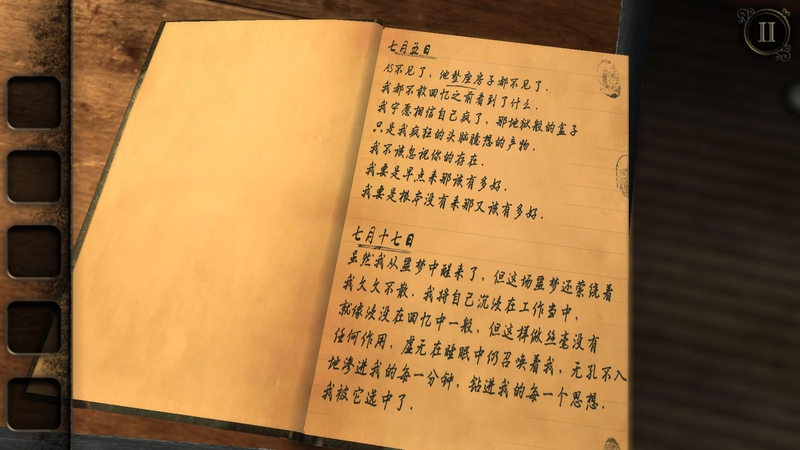 II
七月五日
AS不见了，他整座房子都不见了．
我都不敢回忆之前看到了什么．
我宁愿相信自己疯了，那地狱般的盒子
只是我疯狂的头脑臆想的产物．
我不该忽视你的存在．
我要是早点来那该有多好．
我要是根本没有来那又该有多好．
七月十七日
虽然我从噩梦中醒来了，但这场噩梦还萦绕着
我久久不散．我将自己沉浸在工作当中，
就像淡没在回忆中一般，但这样做丝毫没有
任何作用，虚无在睡眠中仍召唤着我，无孔不入
地渗进我的每一分钟，钻进我的每一个思想．
我被它选中了．